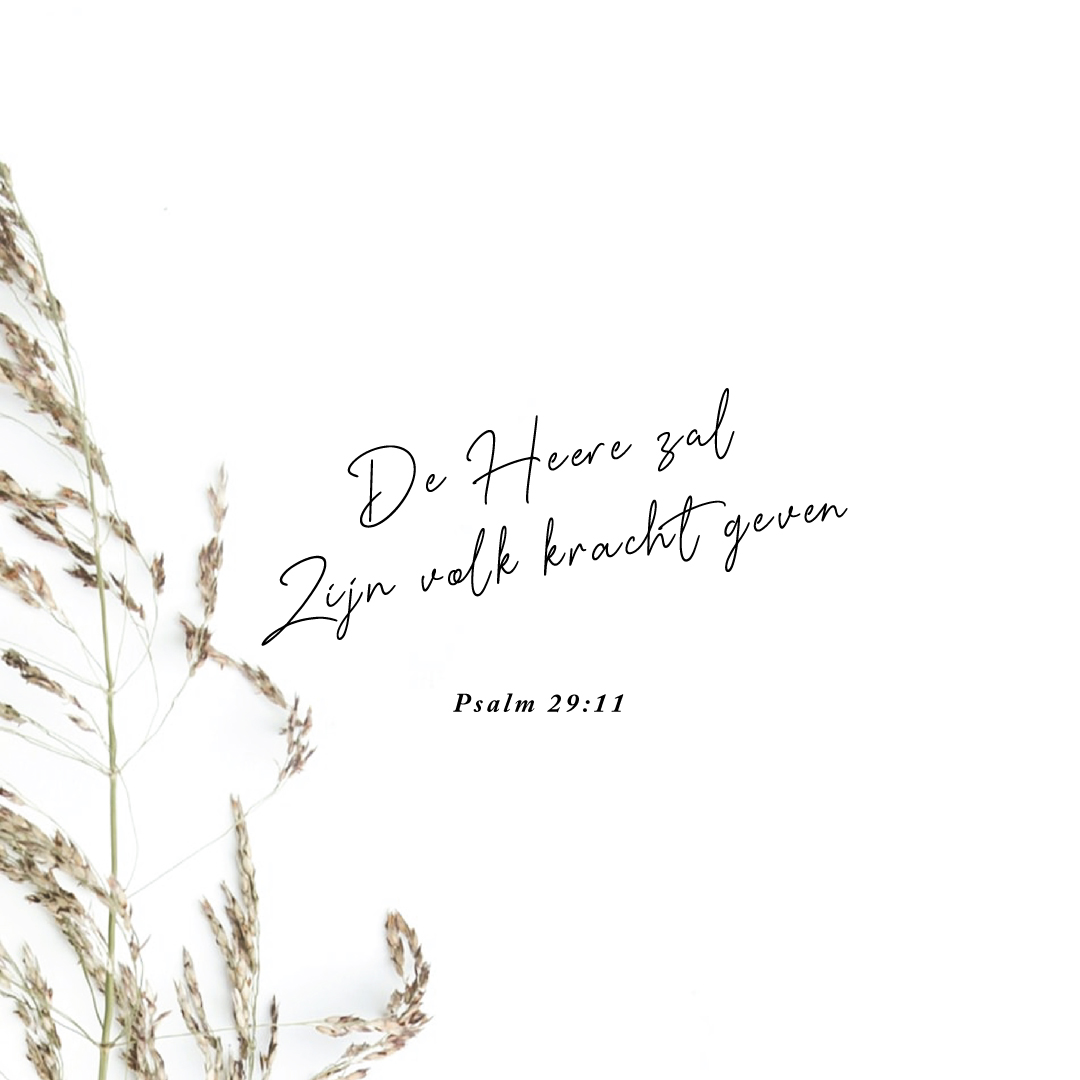 De Heere zal
Zijn volk kracht geven
Psalm 29:11